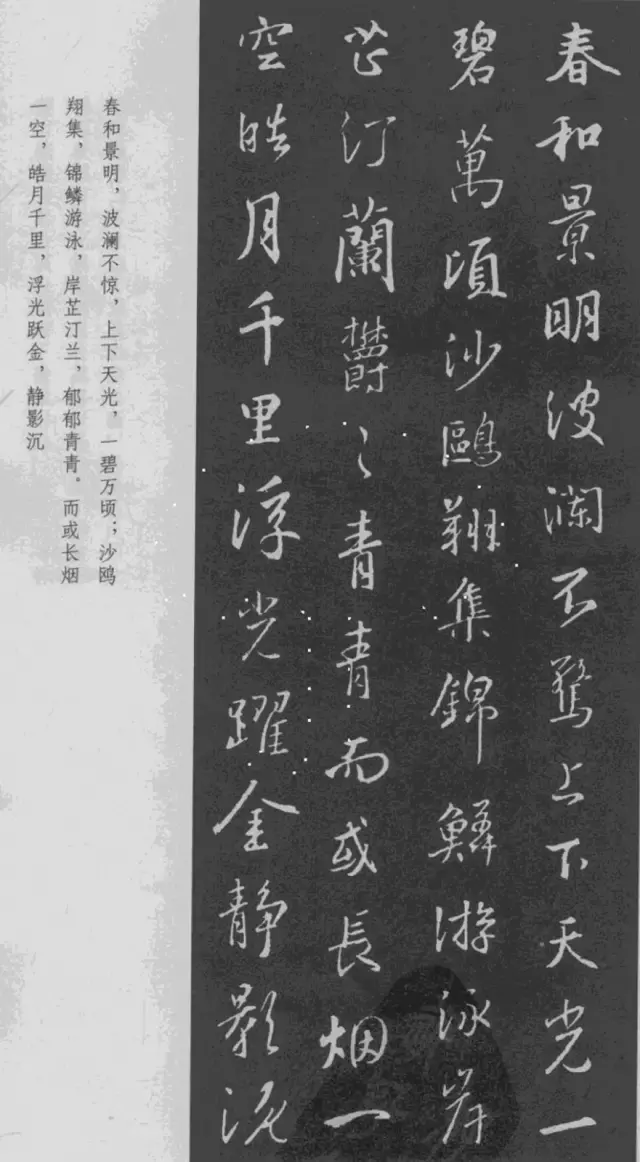 春和景明波瀾不驚上下天光一
碧萬頃沙鷗翔集錦鱗游泳岸
芷汀蘭欝々青青而或長烟一
空皓月千里浮光躍金静影沉
春和景明，波澜不惊，上下天光，一碧万顷；沙鸥
翔集，锦鳞游泳，岸芷汀兰，郁郁青青。而或长烟
一空，皓月千里，浮光跃金，静影沉